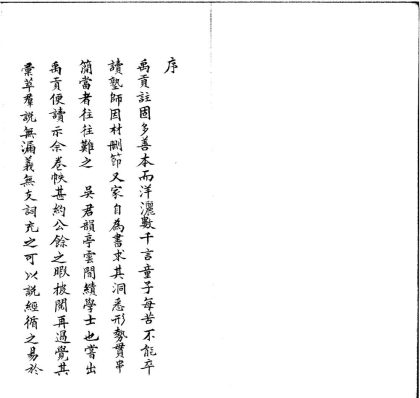 序
禹貢註固多善本而洋灑數千言童子每苦不能卒
讀塾師因材刪節又家自為書求其洞悉形勢貫串
簡當者往往難之 吳君韻亭雲間績學士也嘗出
禹貢便讀示余卷帙甚約公餘之暇披閱再過覺其
彙萃羣說無漏義無支詞充之可以說經循之易於